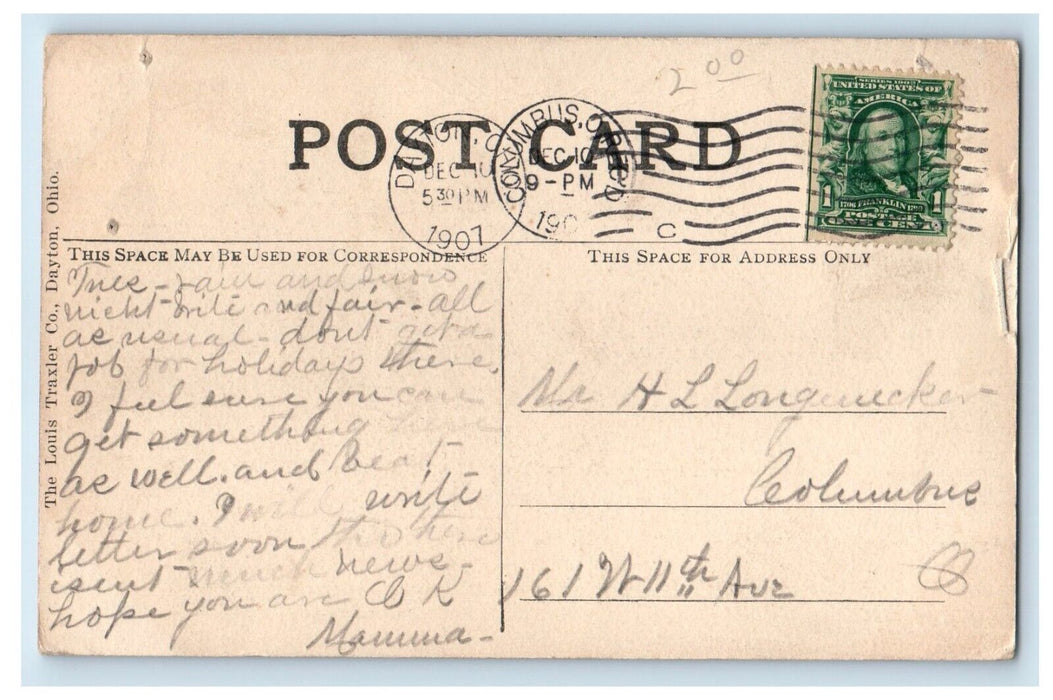 2 00
POST CARD
DAYTON, O.
DEC 10
5 30 PM
1907
COLUMBUS, O. REC'D
DEC 10
9-PM
190
C
SERIES 1902
UNITED STATES OF
AMERICA
1 1
1706 FRANKLIN 1790
POSTAGE
ONE CENT
THIS SPACE MAY BE USED FOR CORRESPONDENCE
THIS SPACE FOR ADDRESS ONLY
The Louis Traxler Co., Dayton, Ohio.
Tues - rain and snow
night - brite and fair - all
as usual - dont get a
job for holidays there,
I feel sure you can
get something here
as well. and be at
home. I will write
letter soon tho there
isent much news -
hope you are O K
Mamma -
Mr H L Longenecker
Columbus
O
161 W 11th Ave